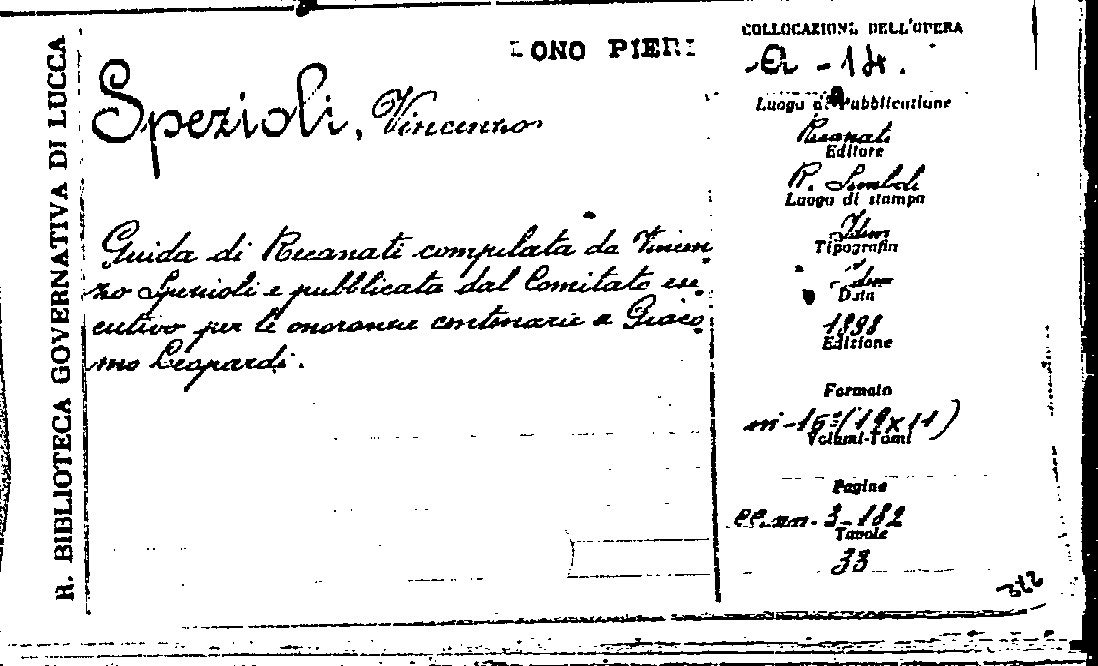 R. BIBLIOTECA GOVERNATIVA DI LUCCA
ONO PIERI
Spezioli, Vincenzo
Guida di Recanati compilata da Vincen
zo Spezioli e pubblicata dal Comitato ese
cutivo per le onoranze centenarie a Giaco
mo Leopardi.
COLLOCAZIONE DELL'OPERA
a - 14.
Luogo di Pubblicazione
Recanati
Editore
R. Simboli
Luogo di stampa
Idem
Tipografia
Idem
Data
1898
Edizione
Formato
in-16º (19x11)
Volumi-Tomi
Pagine
cc. nn. 3-182
Tavole
33
322